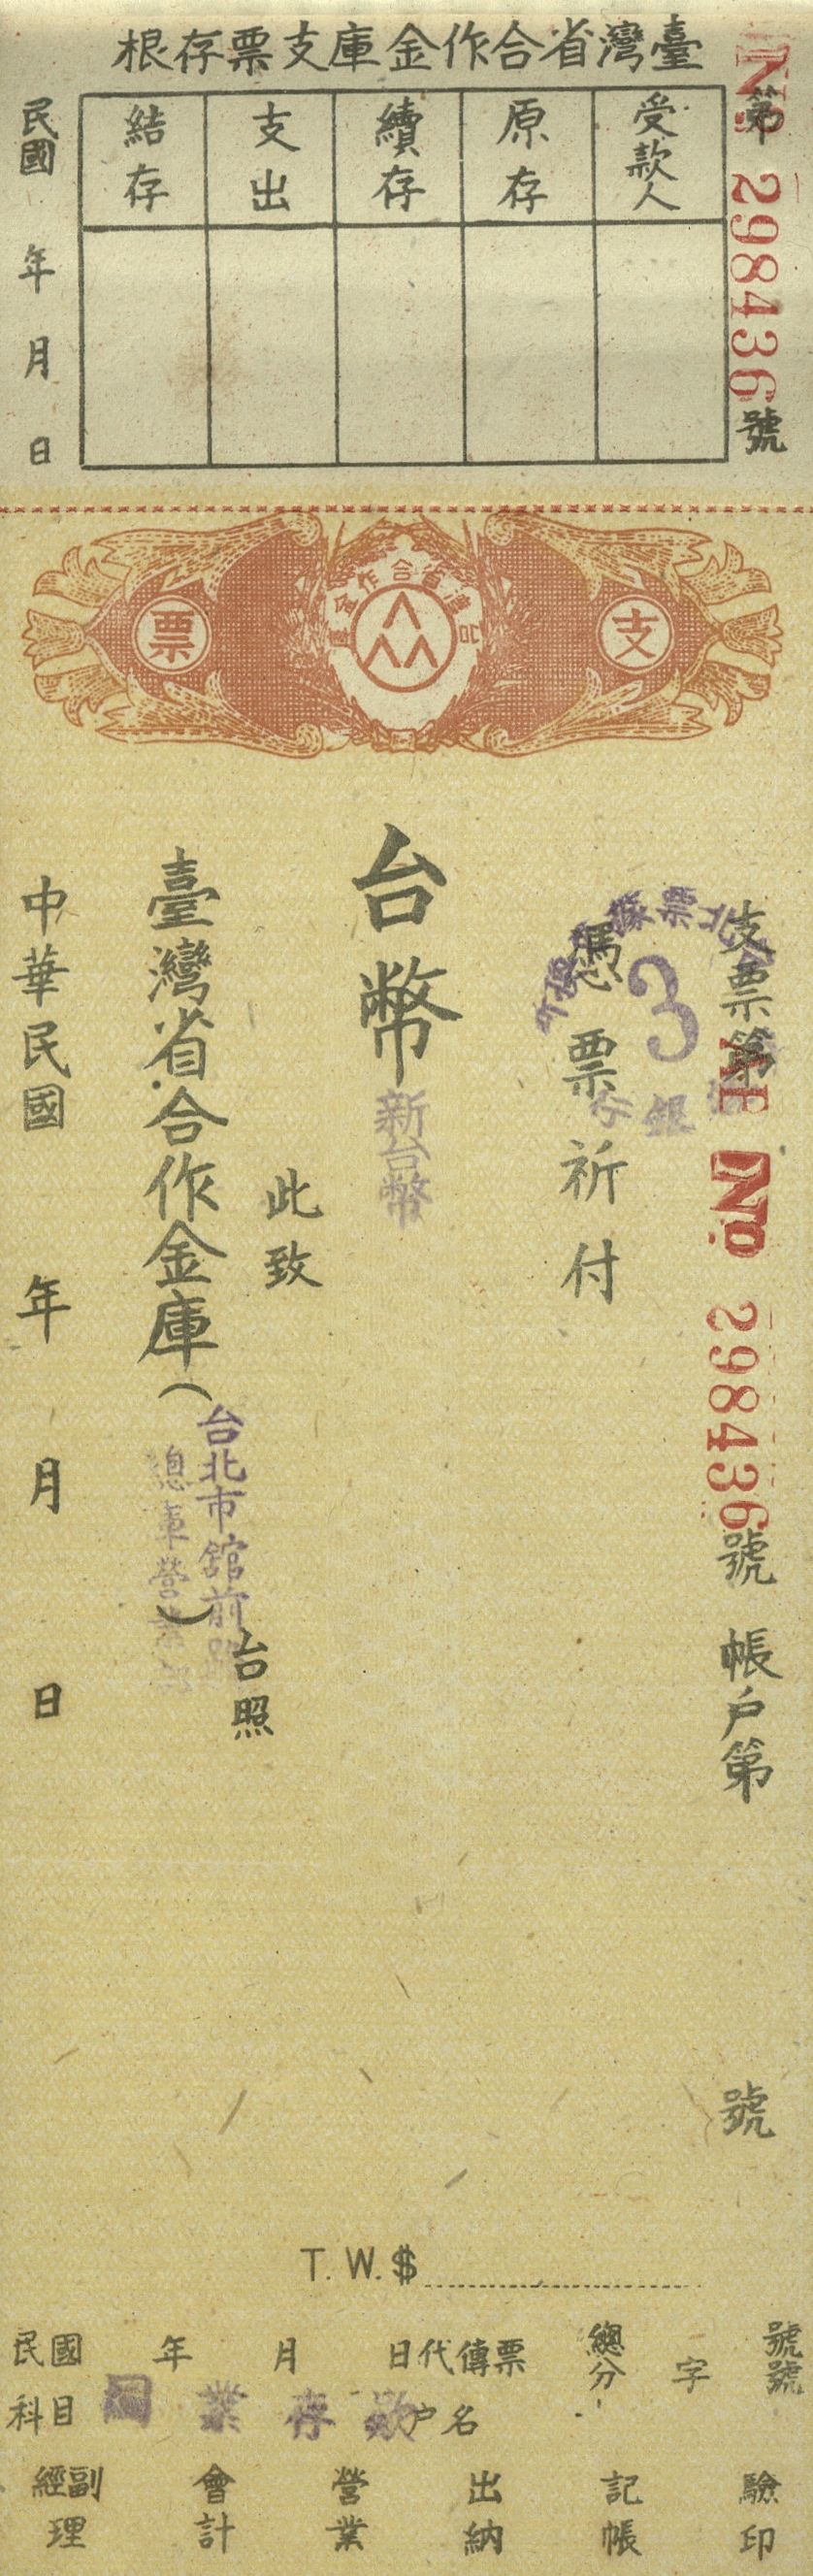 臺灣省合作金庫支票存根
第 No 298436 號
受款人
原存
續存
支出
結存
民國 年 月 日
支
臺灣省合作金庫
票
支票第 AE No 298436 號 帳戶第 號
3
憑票祈付
台幣
新台幣
此致
臺灣省合作金庫（ ）台照
台北市舘前
總庫營業部
中華民國 年 月 日
T. W. $
民國 年 月 日代傳票 總分 字 號號
科目 同業存款 户名
經副理 會計 營業 出納 記帳 驗印